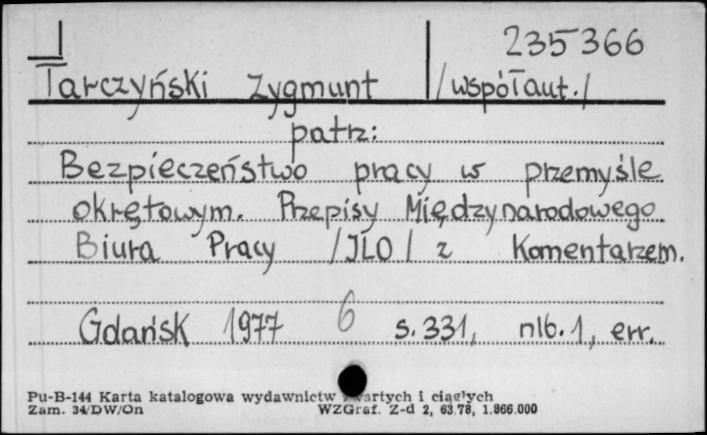 235366
Tarczyński Zygmunt /współaut./
patrz:
Bezpieczeństwo pracy w przemyśle
okrętowym. Przepisy Międzynarodowego
Biura Pracy /JLO/ z Komentarzem.
Gdańsk 1977 6 s.331, nlb.1, err.
Pu-B-144 Karta katalogowa wydawnictw zwartych i ciągłych
Zam. 34/DW/On WZGraf. Z-d 2, 63,78, 1.866.000